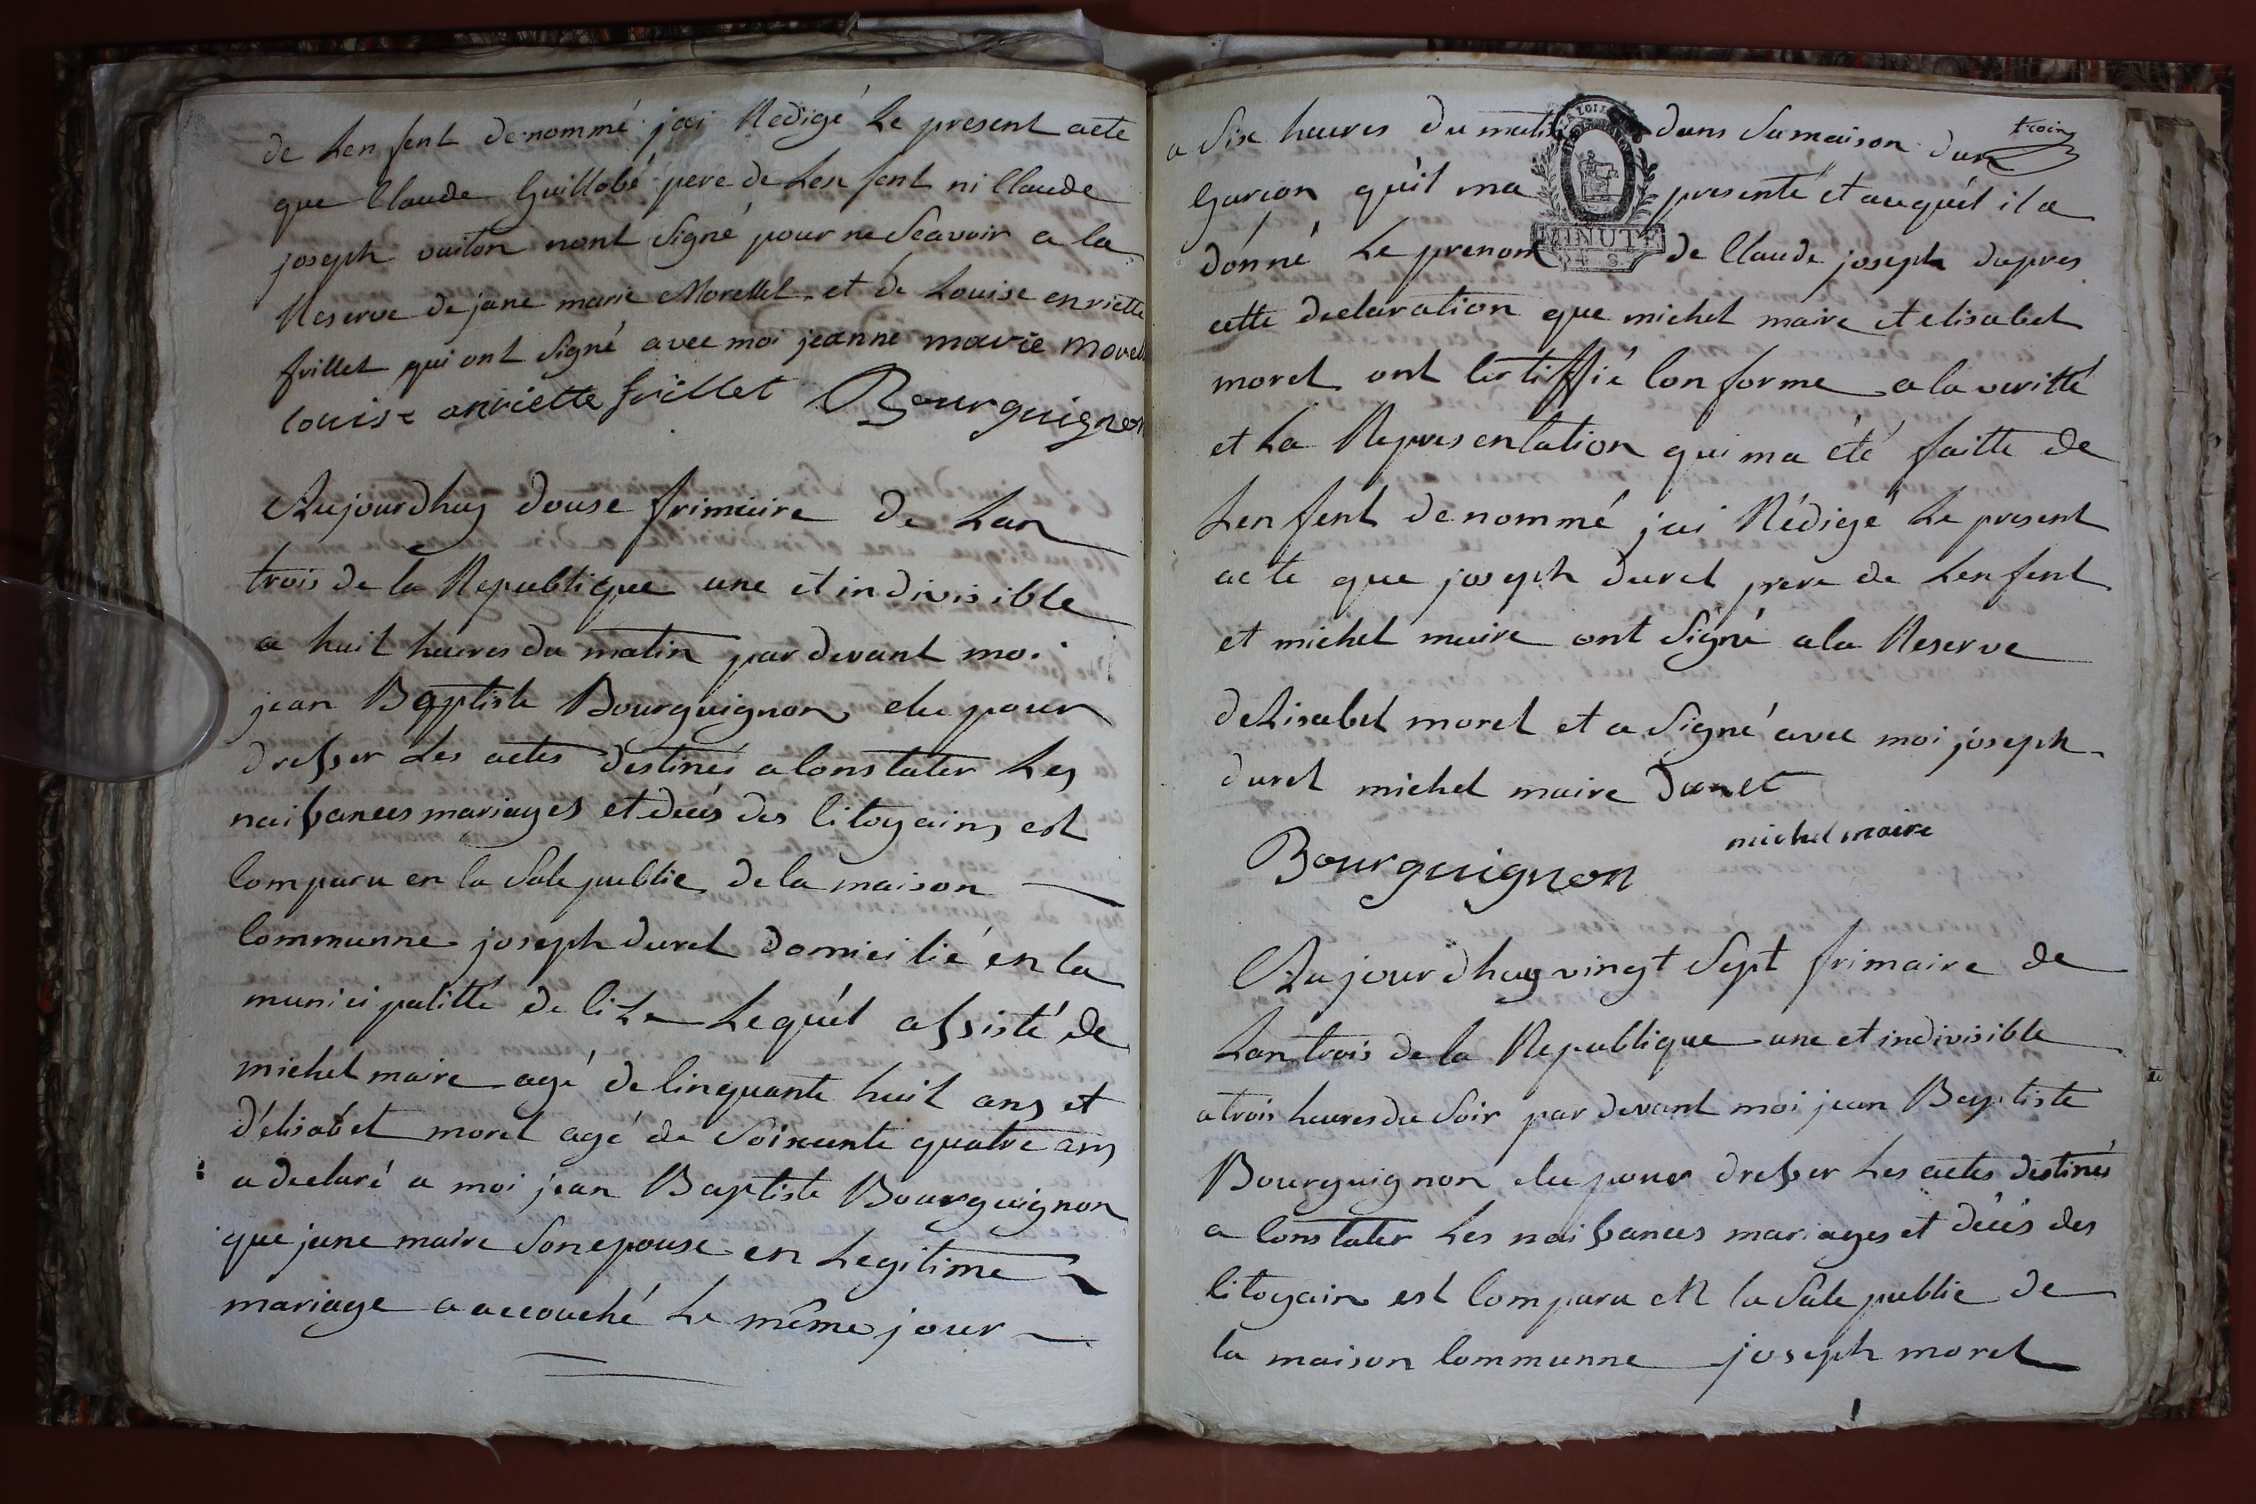 de Lenfent denommé jai Redigé Le present acte
que Claude Guillobé pere de Lenfent ni Claude
joseph vuiton nont Signé pour ne Scavoir a la
Reserve de jane marie Morellet et de Louise enriette
frillet qui ont Signé avec moi jeanne marie morel
louise anriette frillet Bourguignon
Aujourdhuy douse frimaire de Lan
trois de la Republique une et indivisible
a huit heures du matin par devant moi
jean Baptiste Bourguignon elu pour
dresser Les actes destinés a Constater Les
naissances mariages et decés des Citoyains est
Comparu en la Sale public de la maison
Communne joseph duret domicilié en la
municipalitté de Lequél assisté de
michel maire agé de Cinquante huit ans et
d'élisabet morel agé de Soixante quatre ans
a declaré a moi jean Baptiste Bourguignon
que jane maire Son epouse en Legitime
mariage a accouché Le même jour
troin
a Six heures du matin dans Sa maison dun
Garcon qu'il ma presenté et auquél il a
dónné Le prenom de Claude joseph dapres
MINUTE
cette declaration que michel maire et elisabet
morel ont Certiffié Conforme a la veritté
et La Representation qui ma été faitte de
Lenfent denommé jai Rédigé Le present
acte que joseph duret pere de Lenfent
et michel maire ont Signé a la Reserve
delisabet morel et a Signé avec moi joseph
duret michel maire Duret
michel maire
Bourguignon
Aujourdhuy vingt Sept frimaire de
Lan trois de la Republique une et indivisible
a trois heures du Soir par devant moi jean Baptiste
Bourguignon elu pour dresser Les actes destinés
a Constater Les naissances mariages et décés des
Citoyain est Comparu en la Sale public de
la maison Communne joseph morel